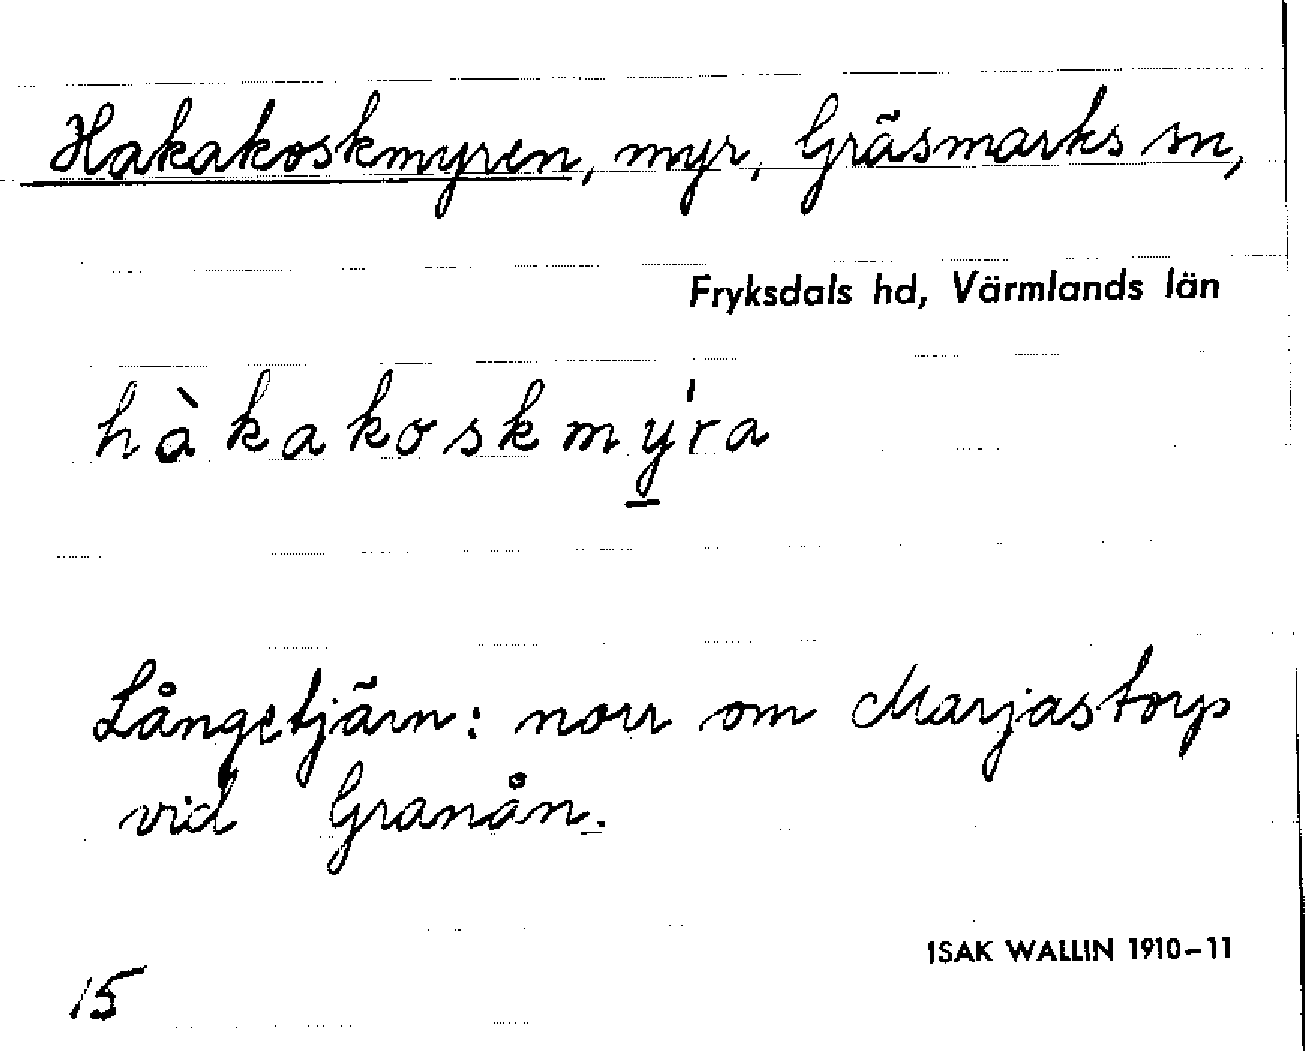 Hakakoskmyren, myr, Gräsmarks sn,
Fryksdals hd, Värmlands län
hàkakoskmy̱ˈra
Långetjärn: norr om Marjastorp
vid Granån.
ISAK WALLIN 1910-11
15